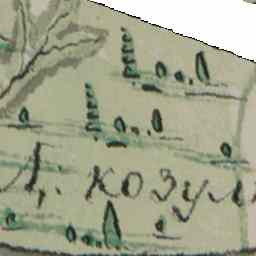 Л. козул